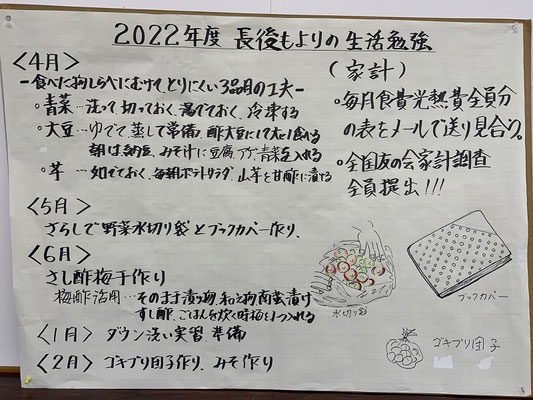 2022年度 長後もよりの生活勉強
<4月>
ー食べた物しらべにむけて、とりにくい3品目の工夫ー
○青菜…洗って切っておく、湯でておく、冷凍する
○大豆…ゆでて、蒸して常備 酢大豆にして大1食べる
朝は納豆、みそ汁に豆腐、アゲ、青菜を入れる
○芋…ゆでておく、毎朝ポテトサラダ、山芋を甘酢に漬ける
<5月>
さらしで"野菜水切り袋"とブックカバー作り、
<6月>
さし酢梅干作り
梅酢活用…そのまま漬物、和え物、菌菜漬け
すし酢、ごはんを炊く時梅を1つ入れる
<1月> ダウン洗い実習 準備
<2月> ゴキブリ団子作り、みそ作り
(家計)
○毎月食費光熱費全員分
の表をメールで送り見合う。
○全国友の会家計調査
全員提出!!!
水切り袋
ブックカバー
ゴキブリ団子